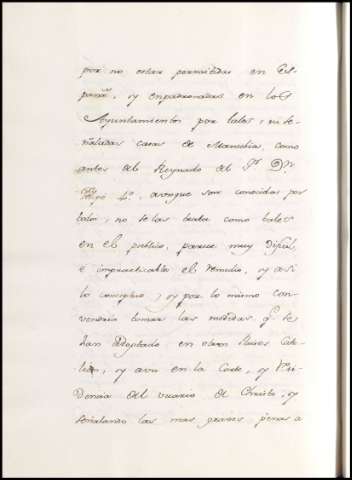 por no estar permitidas en Es-
paña, y enpadronadas en los
Ayuntamientos por tales, ni se-
ñaladas casas de Mancebia, como
antes del Reynado del Sr. Dn.
Felipe 4º. aunque son conocidas por
todos, no se las trata como tales
en el publico, parece muy dificil
é impracticable el remedio, y asi
lo conceptuo, y por lo mismo con-
vendria tomar las medidas q se
han adoptado en otros Paises Cato-
licos, y aun en la Corte, y Resi-
dencia del vicario de Christo, y
señalando las mas graves penas a